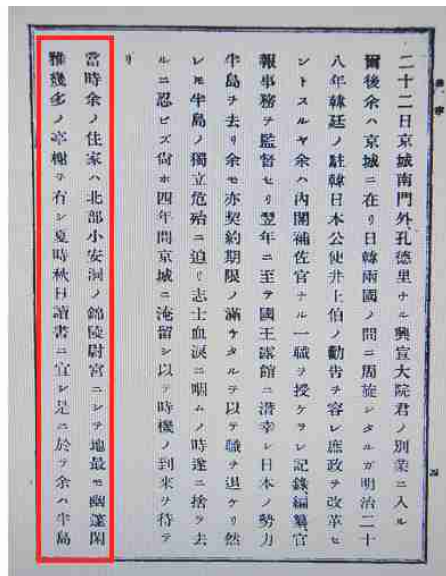 二十二日京城南門外孔德里ナル興宣大院君ノ別業ニ入ル
爾後余ハ京城ニ在リ日韓兩國ノ間ニ周旋シタルガ明治二十
八年韓廷ノ駐韓日本公使井上伯ノ勸告ヲ容レ庶政ヲ改革セ
ントスルヤ余ハ內閣補佐官ナル一職ヲ授ケラレ記錄編纂官
報事務ヲ監督セリ翌年ニ至テ國王露館ニ潛幸シ日本ノ勢力
半島ヲ去リ余モ亦契約期限ノ滿ケタルヲ以テ職ヲ退ケリ然
レモ半島ノ獨立危殆ニ迫リ志士血淚ニ咽ムノ時遂ニ捨ラ去
ルニ忍ビズ尙ホ四年間京城ニ淹留シ以テ時機ノ到來ヲ待テ
リ
當時余ノ住家ハ北部小安洞ノ錦陵尉宮ニシテ地最モ幽邃閑
雅幾多ノ亭榭ヲ有シ夏時秋日讀書ニ宜シ是ニ於テ余ハ半島